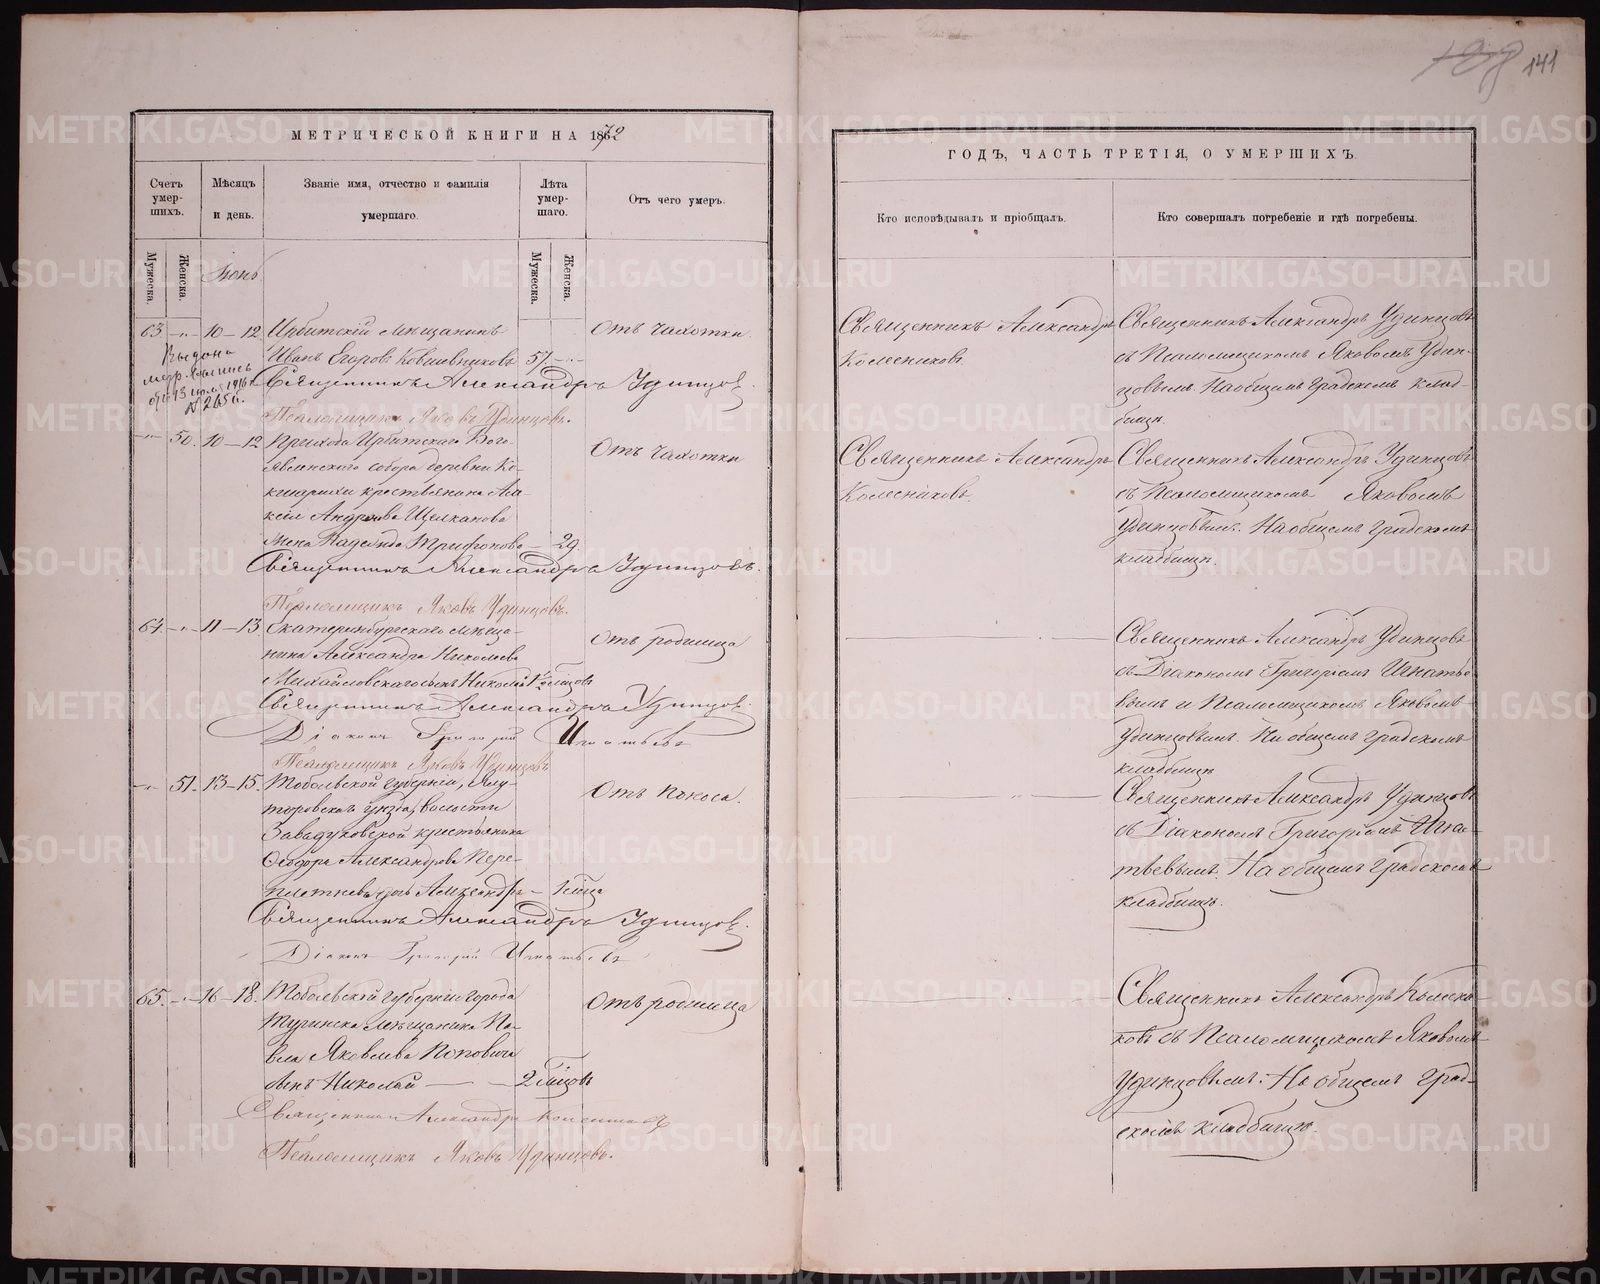 108 141
МЕТРИЧЕСКОЙ КНИГИ НА 1872
Счетъ умер-шихъ.
Мѣсяцъ и день.
Званіе имя, отчество и фамилія умершаго.
Лѣта умер-шаго.
Отъ чего умеръ.
Мужеска.
Женска.
Мужеска.
Женска.
Іюнь
63. -"- 10-12 Ирбитскій мѣщанинъ
Иванъ Егоровъ Ковшевниковъ 57 -"-
Отъ чахотки.
Выдана
метр. выпись
1916
№ 265
Священникъ Александръ Удинцовъ.
Псаломщикъ Яковъ Удинцовъ.
-"- 50. 10-12 Прихода Ирбитскаго Бого-
явленскаго собора деревни Ко-
кшарихи крестьянина Але-
ксѣя Андреева Щелканова
жена Надежда Трифонова - 29.
Отъ чахотки
Священникъ Александръ Удинцовъ.
Псаломщикъ Яковъ Удинцовъ.
64. -"- 11-13 Екатеринбургскаго мѣща-
нина Александра Николаева
Михайловскаго сынъ Николай 1½ мѣсяцовъ
Отъ родимца
Священникъ Александръ Удинцовъ.
Діаконъ Григорій Игнатьевъ
Псаломщикъ Яковъ Удинцовъ
-"- 51. 13-15. Тобольской губерніи, Ялу-
торовскаго уѣзда, волости
Заводуковской крестьянина
Ѳеодора Александрова Пере-
плетнева дочь Александра - 1 мѣсяца
Отъ поноса.
Священникъ Александръ Удинцовъ.
Діаконъ Григорій Игнатьевъ
65. -"- 16-18. Тобольской губерніи города
Туринска мѣщанина Па-
вла Яковлева Поповича
сынъ Николай - 2 мѣсяцовъ
Отъ родимца
Священникъ Александръ Колесниковъ
Псаломщикъ Яковъ Удинцовъ.
ГОДЪ, ЧАСТЬ ТРЕТІЯ, О УМЕРШИХЪ.
Кто исповѣдывалъ и пріобщалъ.
Кто совершалъ погребеніе и гдѣ погребены.
Священникъ Александръ
Колесниковъ.
Священникъ Александръ Удинцовъ
съ Псаломщикомъ Яковомъ Удин-
цовымъ. На общемъ градскомъ клад-
бищѣ.
Священникъ Александръ
Колесниковъ.
Священникъ Александръ Удинцовъ
съ Псаломщикомъ Яковомъ
Удинцовымъ. На общемъ градскомъ
кладбищѣ.
Священникъ Александръ Удинцовъ
съ Діакономъ Григоріемъ Игнатье-
вымъ и Псаломщикомъ Яковомъ
Удинцовымъ. На общемъ градскомъ
кладбищѣ
Священникъ Александръ Удинцовъ
съ Діакономъ Григоріемъ Игна-
тьевымъ. На общемъ градскомъ
кладбищѣ.
Священникъ Александръ Колесни-
ковъ съ Псаломщикомъ Яковомъ
Удинцовымъ. На общемъ град-
скомъ кладбищѣ.
METRIKI.GASO-URAL.RU